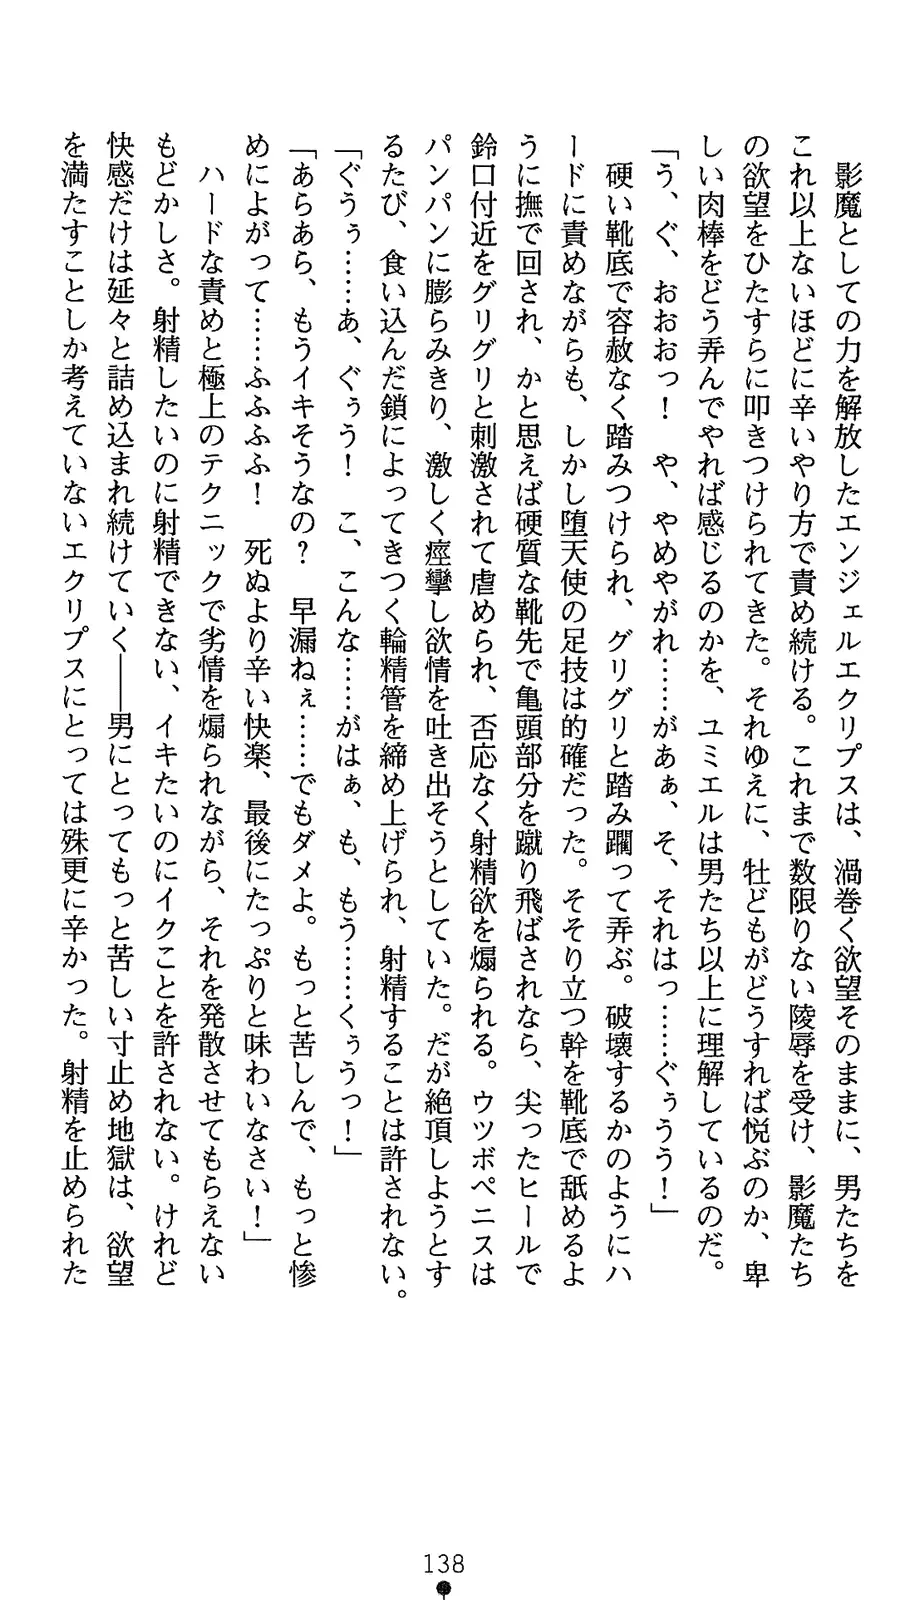 影魔としての力を解放したエンジェルエクリプスは、渦巻く欲望そのままに、男たちを
これ以上ないほどに辛いやり方で責め続ける。これまで数限りない陵辱を受け、影魔たち
の欲望をひたすらに叩きつけられてきた。それゆえに、牡どもがどうすれば悦ぶのか、卑
しい肉棒をどう弄んでやれば感じるのかを、ユミエルは男たち以上に理解しているのだ。
「う、ぐ、おおおっ！　や、やめやがれ……があぁ、そ、それはっ……ぐぅうう！」
硬い靴底で容赦なく踏みつけられ、グリグリと踏み躙って弄ぶ。破壊するかのようにハ
ードに責めながらも、しかし堕天使の足技は的確だった。そそり立つ幹を靴底で舐めるよ
うに撫で回され、かと思えば硬質な靴先で亀頭部分を蹴り飛ばされなら、尖ったヒールで
鈴口付近をグリグリと刺激されて虐められ、否応なく射精欲を煽られる。ウツボペニスは
パンパンに膨らみきり、激しく痙攣し欲情を吐き出そうとしていた。だが絶頂しようとす
るたび、食い込んだ鎖によってきつく輪精管を締め上げられ、射精することは許されない。
「ぐうぅ……あ、ぐぅう！　こ、こんな……がはぁ、も、もう……くぅうっ！」
「あらあら、もうイキそうなの？　早漏ねぇ……でもダメよ。もっと苦しんで、もっと惨
めによがって……ふふふふ！　死ぬより辛い快楽、最後にたっぷりと味わいなさい！」
ハードな責めと極上のテクニックで劣情を煽られながら、それを発散させてもらえない
もどかしさ。射精したいのに射精できない、イキたいのにイクことを許されない。けれど
快感だけは延々と詰め込まれ続けていく――男にとってもっと苦しい寸止め地獄は、欲望
を満たすことしか考えていないエクリプスにとっては殊更に辛かった。射精を止められた
138